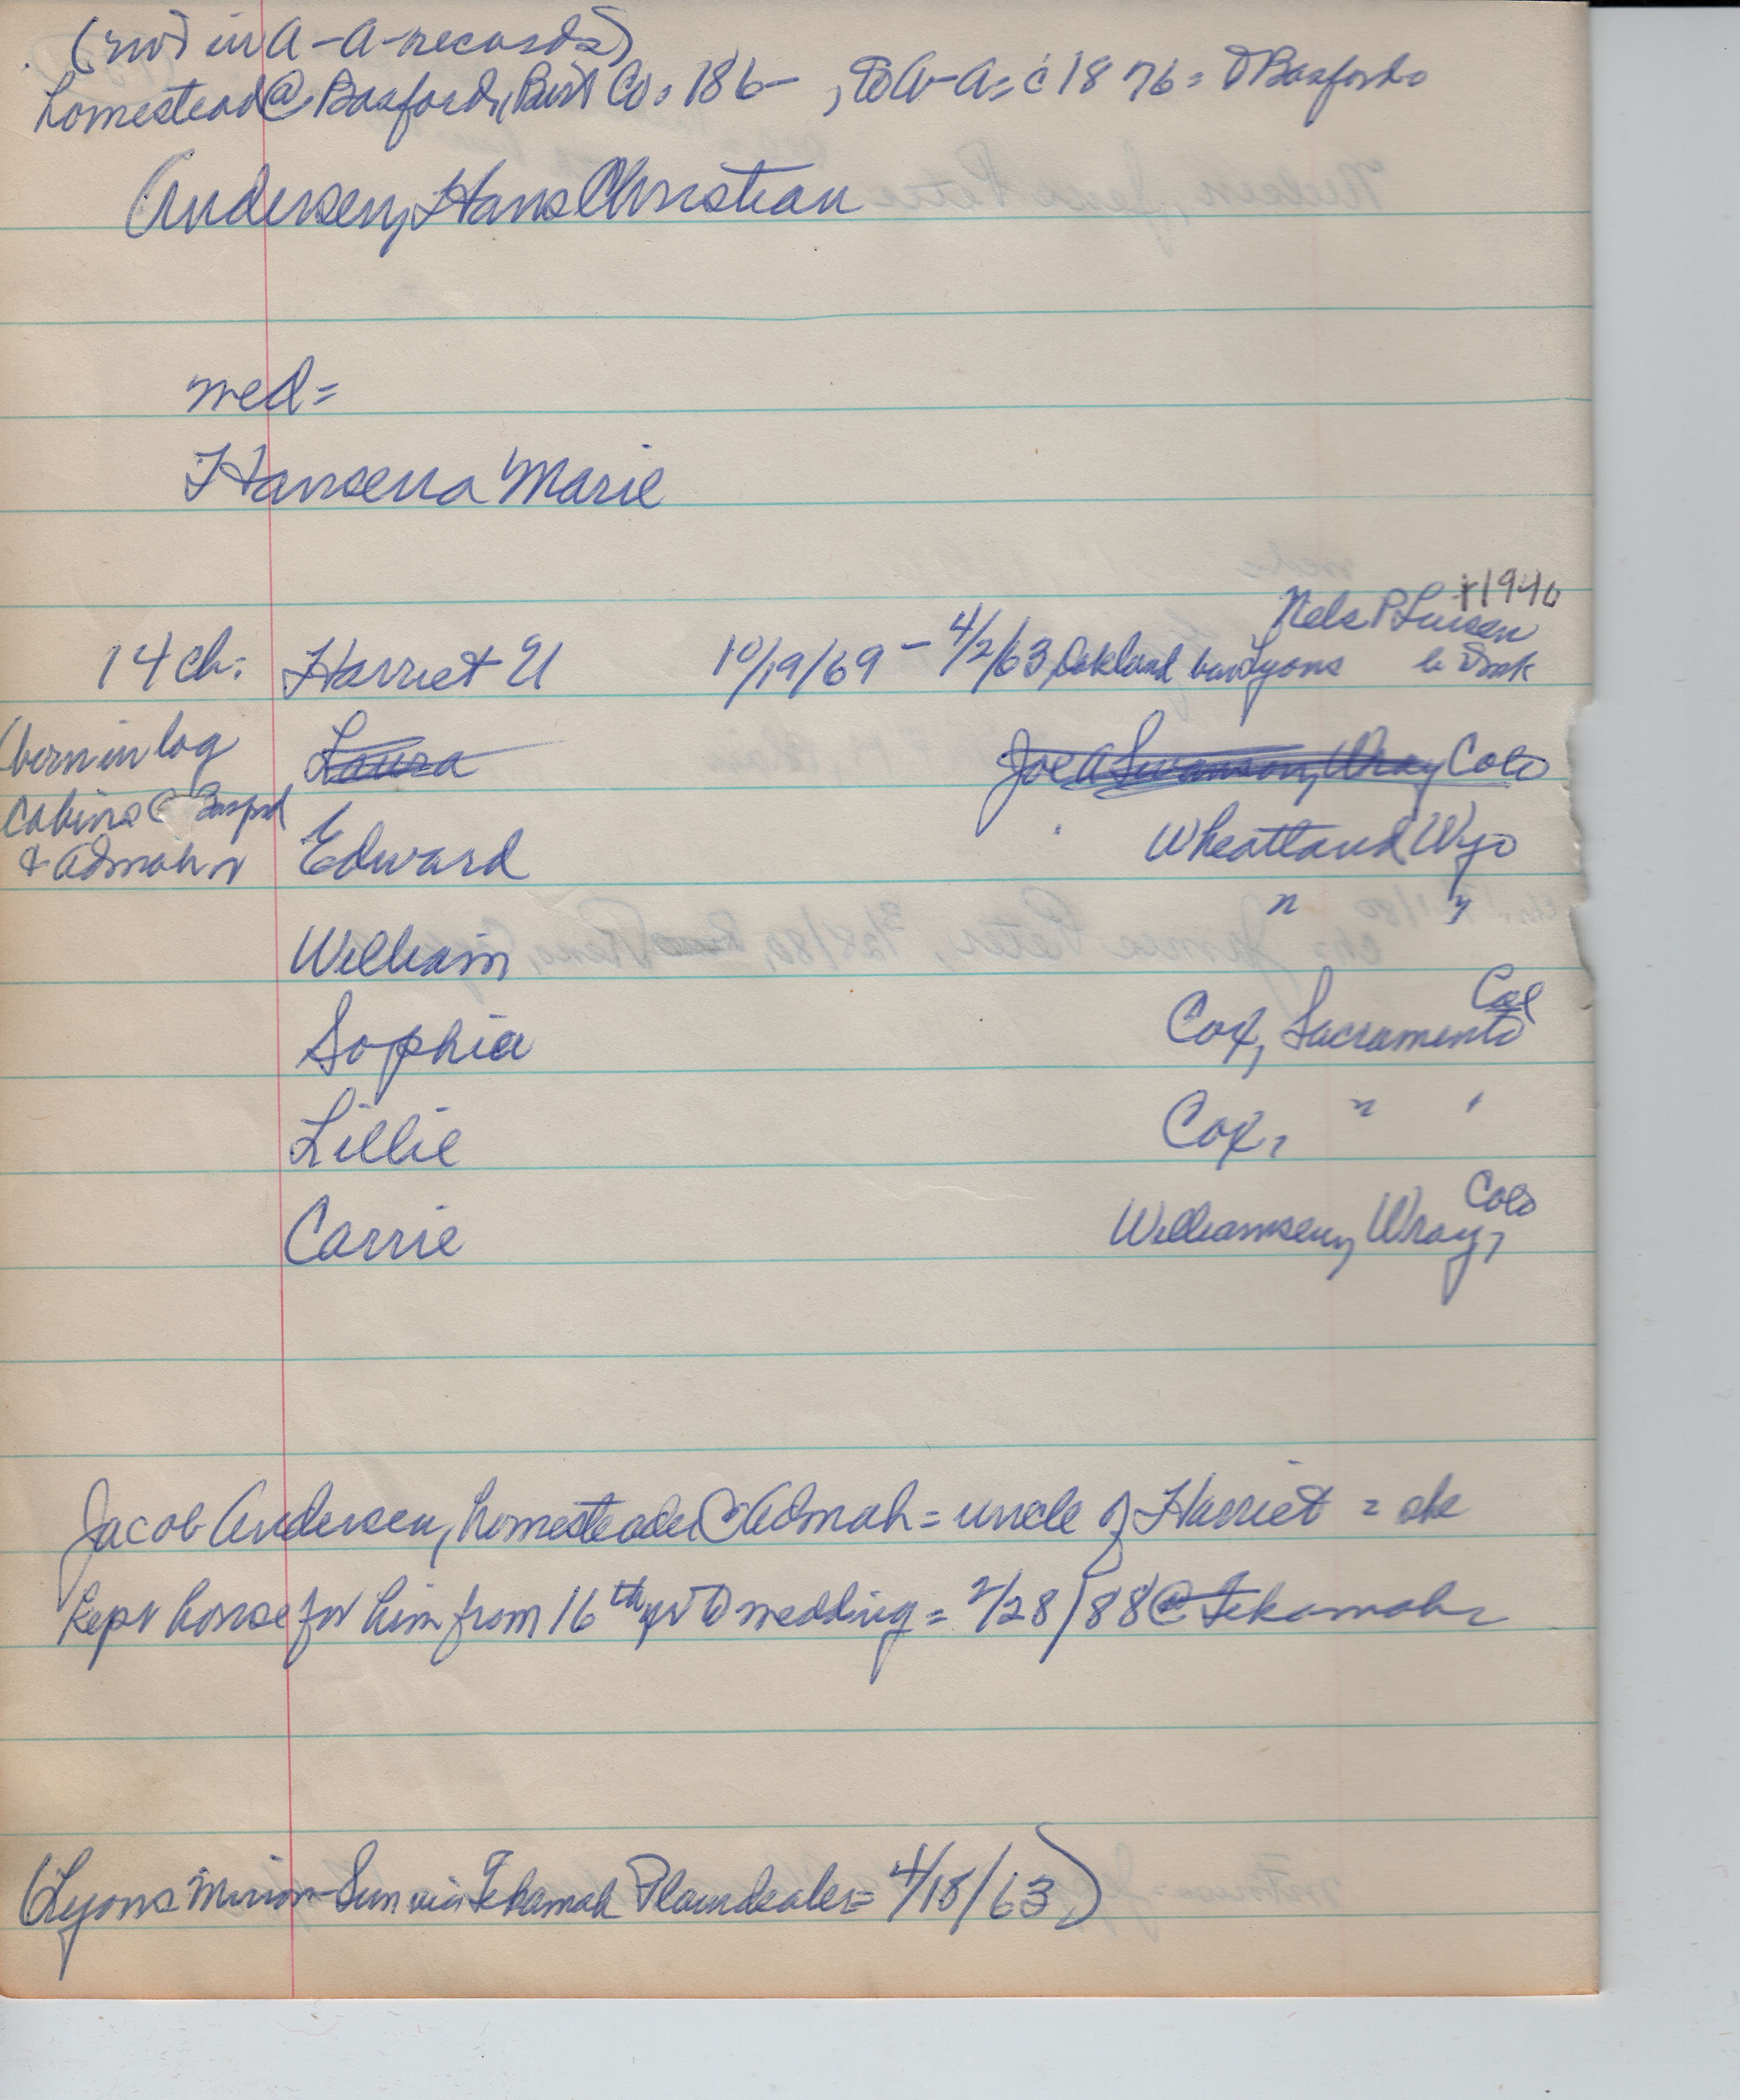 (not in A-A-records)
homestead @ Basford, Burt Co = 186- , to A-A = c 1876 = @ Basford
Andersen, Hans Christian
med=
Hansena Marie
+1940
Nels P Larsen
14 ch: Harriet 10/19/69 - 4/2/63 Oakland bur Lyons b Dmk
(born in log Laura Joe A Swanson, Wray Colo
cabins @
& Admah Edward Wheatland Wyo
William " "
Sophia Cox, Sacramento Cal
Lillie Cox, " "
Carrie Williamsen, Wray, Colo
Jacob Andersen, homesteader @ Admah = uncle of Harriet = she
kept house for him from 16th yr to wedding = 2/28/88 @ Tekamah
(Lyons Mirror-Sun via Tekamah Plaindealer = 4/18/63)